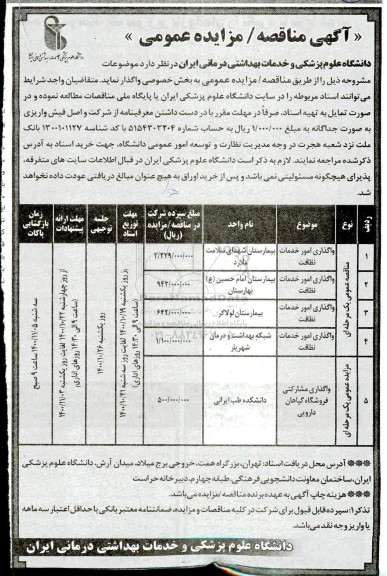 « آگهی مناقصه / مزایده عمومی »
دانشگاه علوم پزشکی و خدمات بهداشتی درمانی ایران در نظر دارد موضوعات
مشروحه ذیل را از طریق مناقصه / مزایده عمومی به بخش خصوصی واگذار نماید. متقاضیان واجد شرایط
می‌توانند اسناد مربوطه را در سایت دانشگاه علوم پزشکی ایران یا پایگاه ملی مناقصات مطالعه نموده و در
صورت تمایل به تهیه اسناد، صرفاً در مهلت مقرر با در دست داشتن معرفینامه از شرکت و اصل فیش واریزی
به صورت جداگانه به مبلغ ۱/۰۰۰/۰۰۰ ریال به حساب شماره ۵۱۵۴۳۰۳۲۰۴ با کد شناسه ۱۳۰۰۱۰۱۱۲۷ بانک
ملت نزد شعبه هجرت در وجه مدیریت نظارت و توسعه امور عمومی دانشگاه، جهت خرید اسناد به آدرس
ذکرشده مراجعه نمایند. لازم به ذکر است دانشگاه علوم پزشکی ایران در قبال اطلاعات سایت های متفرقه،
پذیرای هیچگونه مسئولیتی نمی باشد و پس از خرید اوراق به هیچ عنوان مبالغ دریافتی عودت داده نخواهد
شد.
ردیف نوع موضوع نام واحد مبلغ سپرده شرکت در مناقصه / مزایده (ریال) مهلت توزیع اسناد جلسه توجیهی مهلت ارائه پیشنهادات زمان بازگشایی پاکات
مناقصه عمومی یک مرحله ای
۱ واگذاری امور خدمات نظافت بیمارستان شهدای سلامت ملارد ۲/۳۲۹/۰۰۰/۰۰۰
۲ واگذاری امور خدمات نظافت بیمارستان امام حسین (ع) بهارستان ۹۴۲/۰۰۰/۰۰۰
۳ واگذاری امور خدمات نظافت بیمارستان لولاگر ۶۴۲/۰۰۰/۰۰۰
۴ واگذاری امور خدمات نظافت شبکه بهداشت و درمان شهریار ۱/۱۰۰/۰۰۰/۰۰۰
مزایده عمومی یک مرحله ای
۵ واگذاری مشارکتی فروشگاه گیاهان دارویی دانشکده طب ایرانی ۵۰۰/۰۰۰/۰۰۰
از روز یکشنبه ۱۴۰۰/۱۰/۱۹ لغایت روز سه شنبه ۱۴۰۰/۱۰/۲۱ (ساعت ۹ الی ۱۴:۳۰ روزهای اداری)
روز یکشنبه ۱۴۰۰/۱۰/۲۶
از روز چهارشنبه ۱۴۰۰/۱۰/۲۲ لغایت روز یکشنبه ۱۴۰۰/۱۱/۰۳ (ساعت ۹ الی ۱۴:۳۰ روزهای اداری)
سه شنبه ۱۴۰۰/۱۱/۰۵ ساعت ۹ صبح
*** آدرس محل دریافت اسناد: تهران، بزرگراه همت، خروجی برج میلاد، میدان آرش، دانشگاه علوم پزشکی
ایران، ساختمان معاونت دانشجویی فرهنگی، طبقه چهارم، دبیرخانه حراست
*** هزینه چاپ آگهی به عهده برنده مناقصه / مزایده می‌باشد.
تذکر ۱: سپرده قابل قبول برای شرکت در کلیه مناقصات و مزایده، ضمانتنامه معتبر بانکی با حداقل اعتبار سه ماهه
یا واریز وجه نقد می‌باشد.
دانشگاه علوم پزشکی و خدمات بهداشتی درمانی ایران